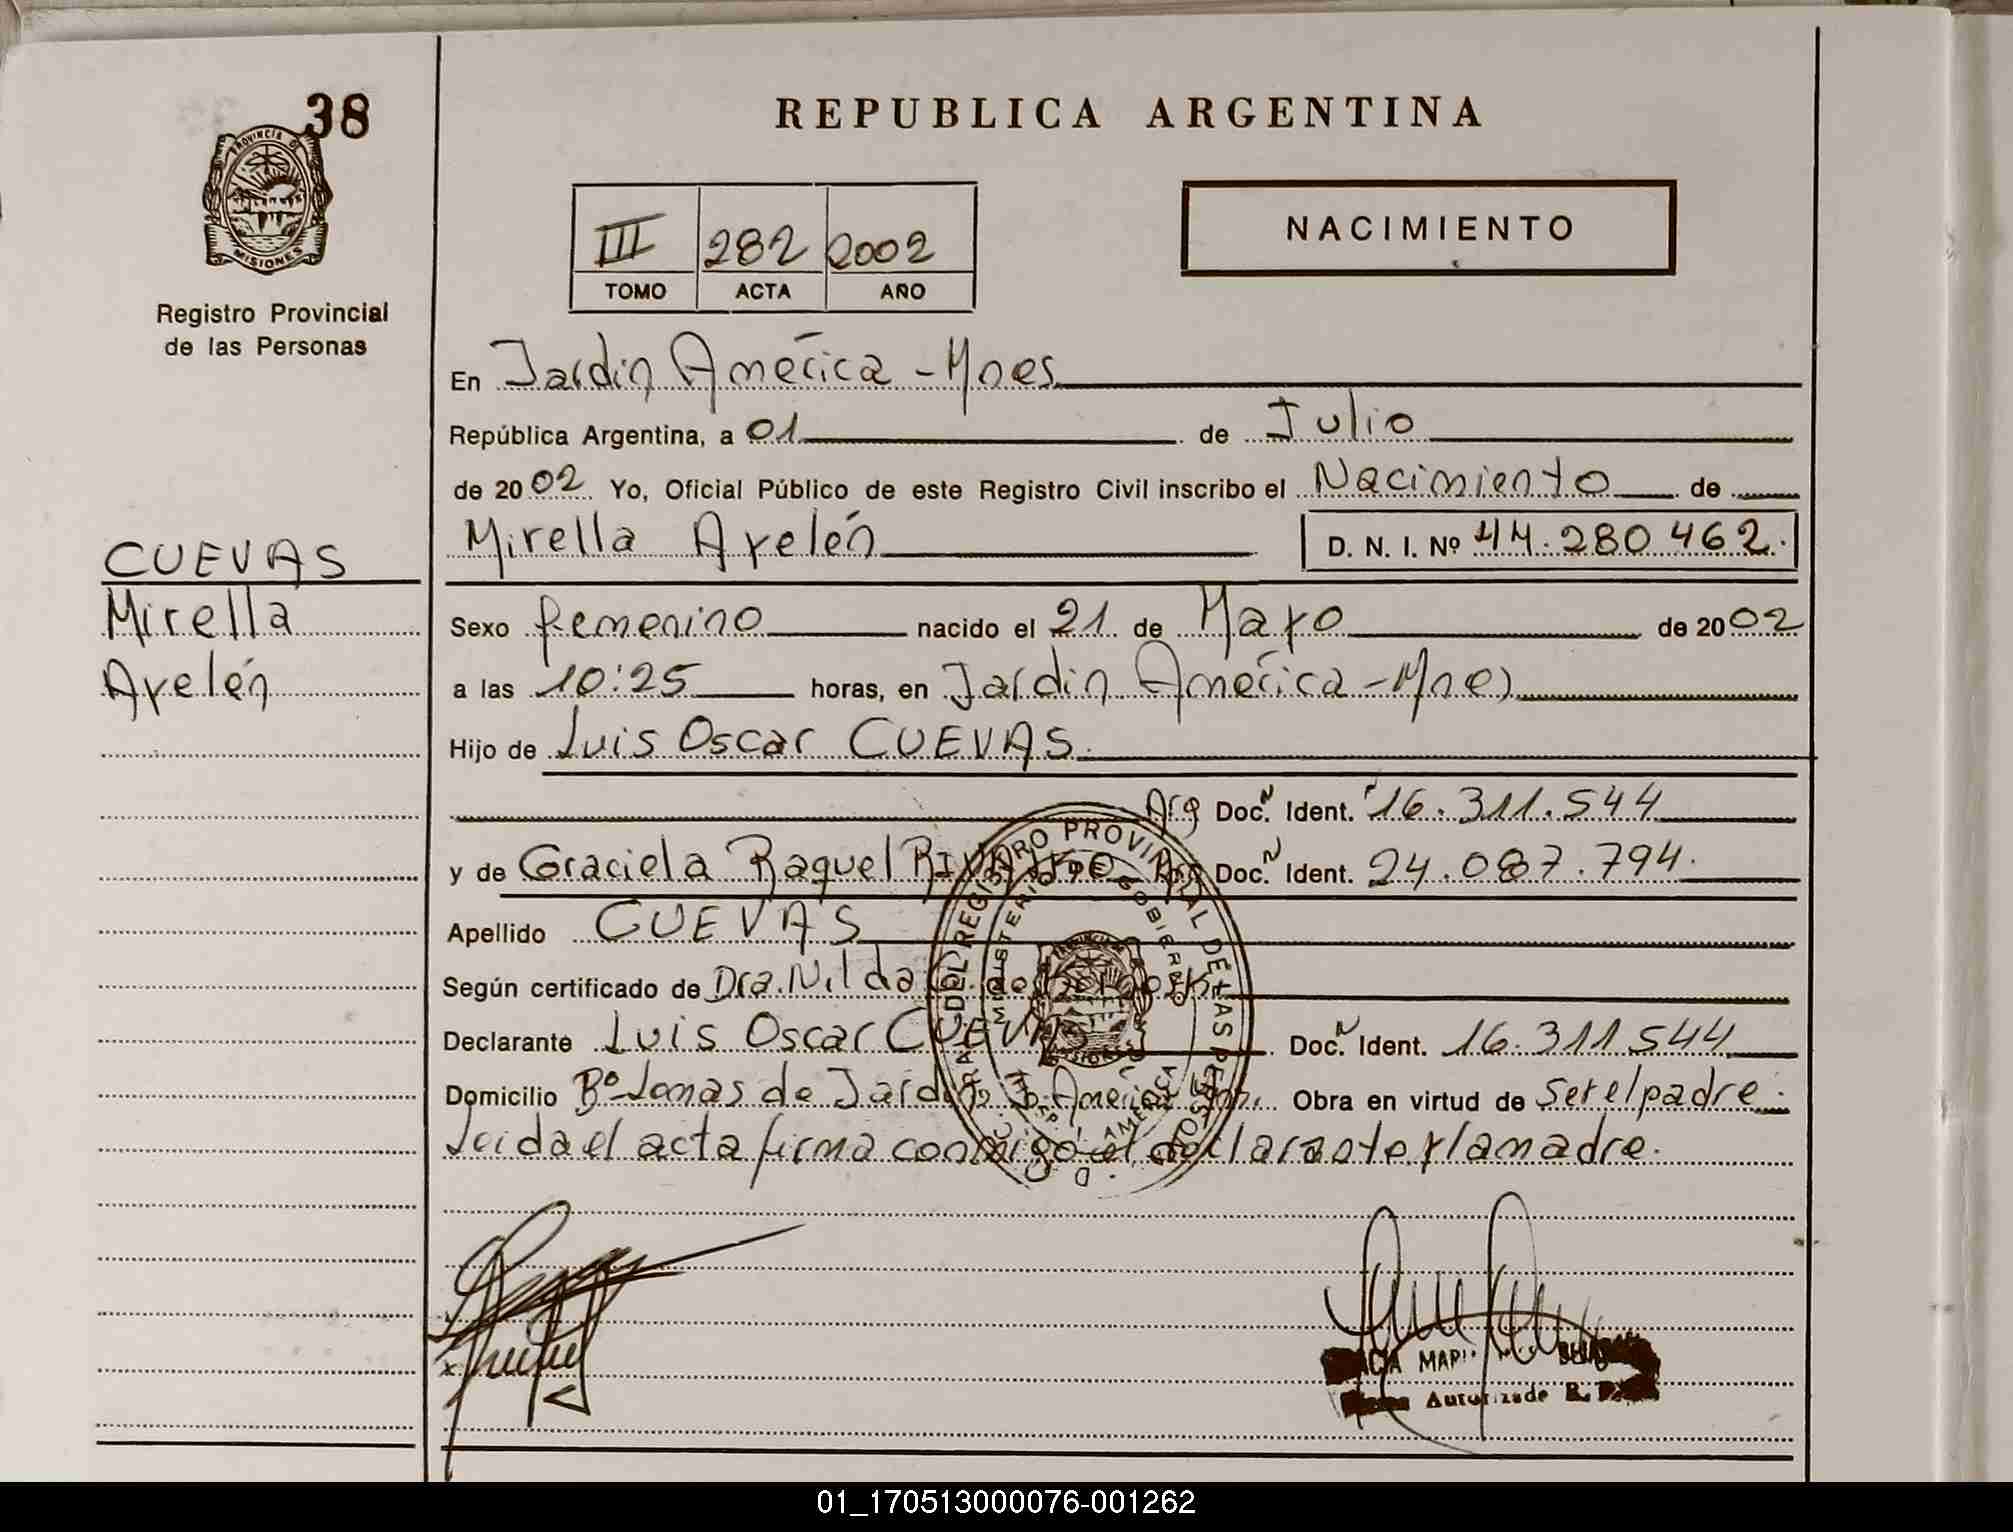 38
REPUBLICA ARGENTINA
PROVINCIA DE
MISIONES
Registro Provincial
de las Personas
NACIMIENTO
III 282 2002
TOMO ACTA AÑO
En Jardin América - Mnes
República Argentina, a 01 de Julio
de 2002 Yo, Oficial Público de este Registro Civil inscribo el Nacimiento de
Mirella Ayelén D. N. I. Nº 44.280462.
CUEVAS
Mirella
Ayelén
Sexo femenino nacido el 21 de Mayo de 2002
a las 10:25 horas, en Jardin América - Mnes
Hijo de Luis Oscar CUEVAS.
Arg Doc. Ident. 16.311.544
y de Graciela Raquel Arg Doc. Ident. 24.087.794.
Apellido CUEVAS
Según certificado de Dra. Nilda
Declarante Luis Oscar CUEVAS Doc. Ident. 16.311544
Domicilio Bº Lomas de Jardin América Obra en virtud de ser el padre.
Leida el acta firma conmigo el declarante y la madre.
DEL REGISTRO PROVINCIAL DE LAS PERSONAS
MINISTERIO DE GOBIERNO
AMERICA
MISIONES
Autorizada
01_170513000076-001262